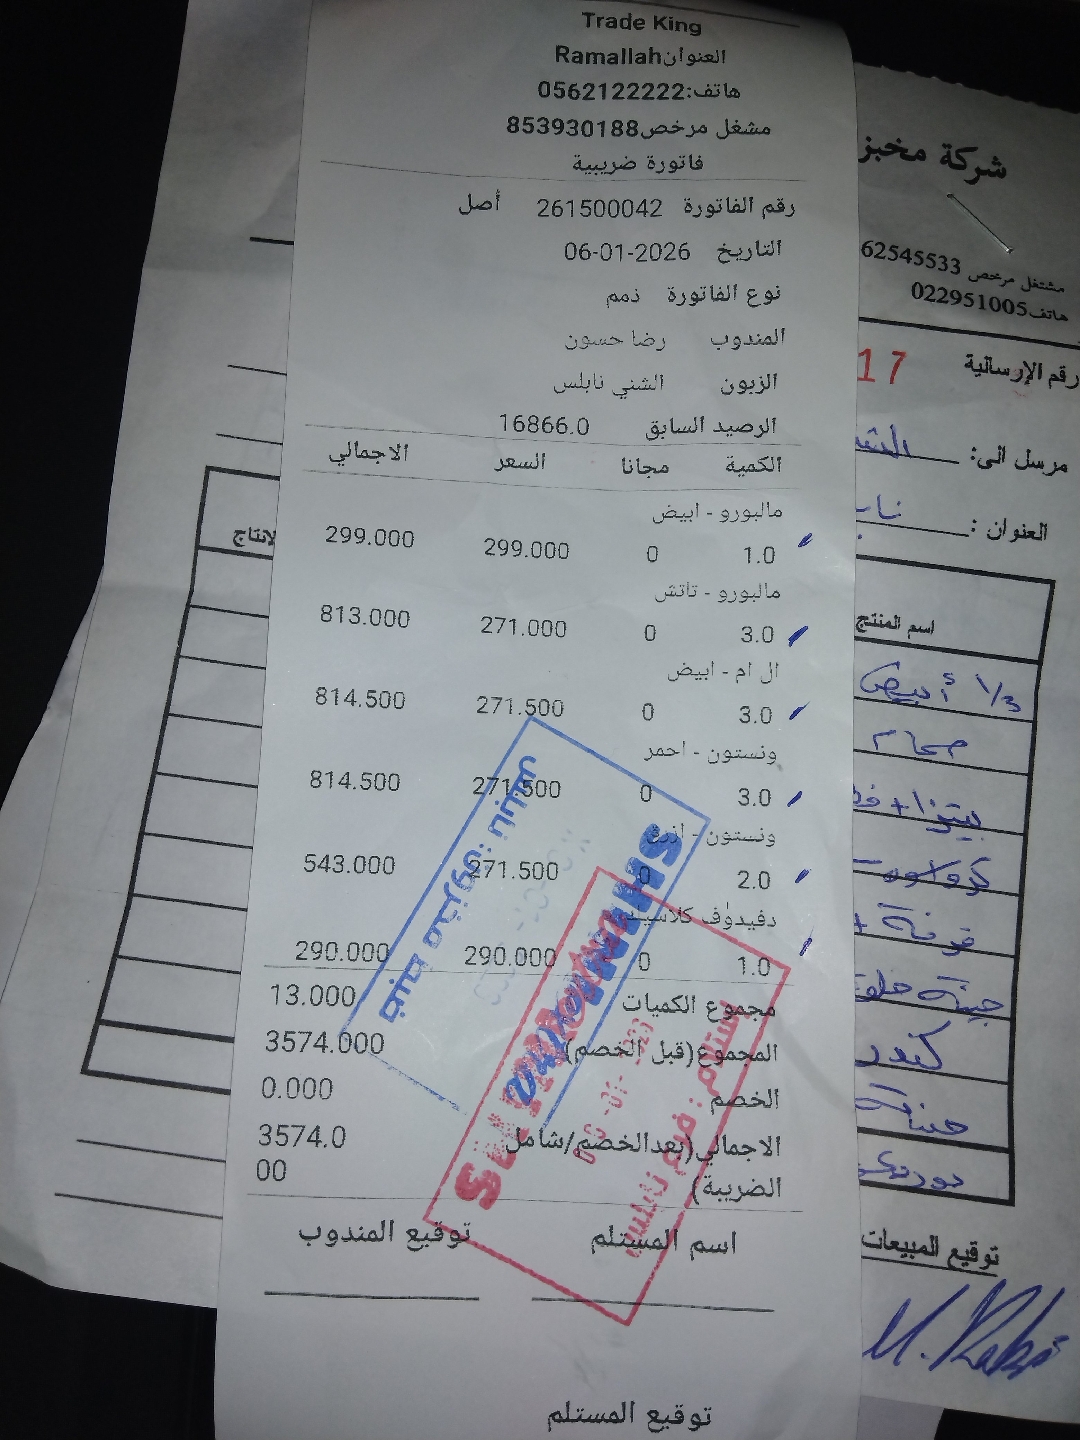 Trade King
العنوانRamallah
هاتف:0562122222
مشغل مرخص853930188
فاتورة ضريبية
رقم الفاتورة 261500042 أصل
التاريخ 06-01-2026
نوع الفاتورة ذمم
المندوب رضا حسون
الزبون الشني نابلس
الرصيد السابق 16866.0
الكمية مجانا السعر الاجمالي
مالبورو - ابيض
1.0 0 299.000 299.000
مالبورو - تاتش
3.0 0 271.000 813.000
ال ام - ابيض
3.0 0 271.500 814.500
ونستون - احمر
3.0 0 271.500 814.500
ونستون - ازرق
2.0 0 271.500 543.000
دفيدوف كلاسيك
1.0 0 290.000 290.000
مجموع الكميات 13.000
المجموع(قبل الخصم) 3574.000
الخصم 0.000
الاجمالي(بعدالخصم/شامل الضريبة) 3574.000
اسم المستلم توقيع المندوب
توقيع المستلم
ضبط مخزون: نابلس
استلام: فرع نابلس
شركة مخبز
مشتغل مرخص 62545533
هاتف022951005
رقم الإرسالية 17
مرسل الى:
العنوان:
اسم المنتج
الانتاج
1/3 أبيض
حمام
بيتزا +
قرفة +
جبنة
توقيع المبيعات